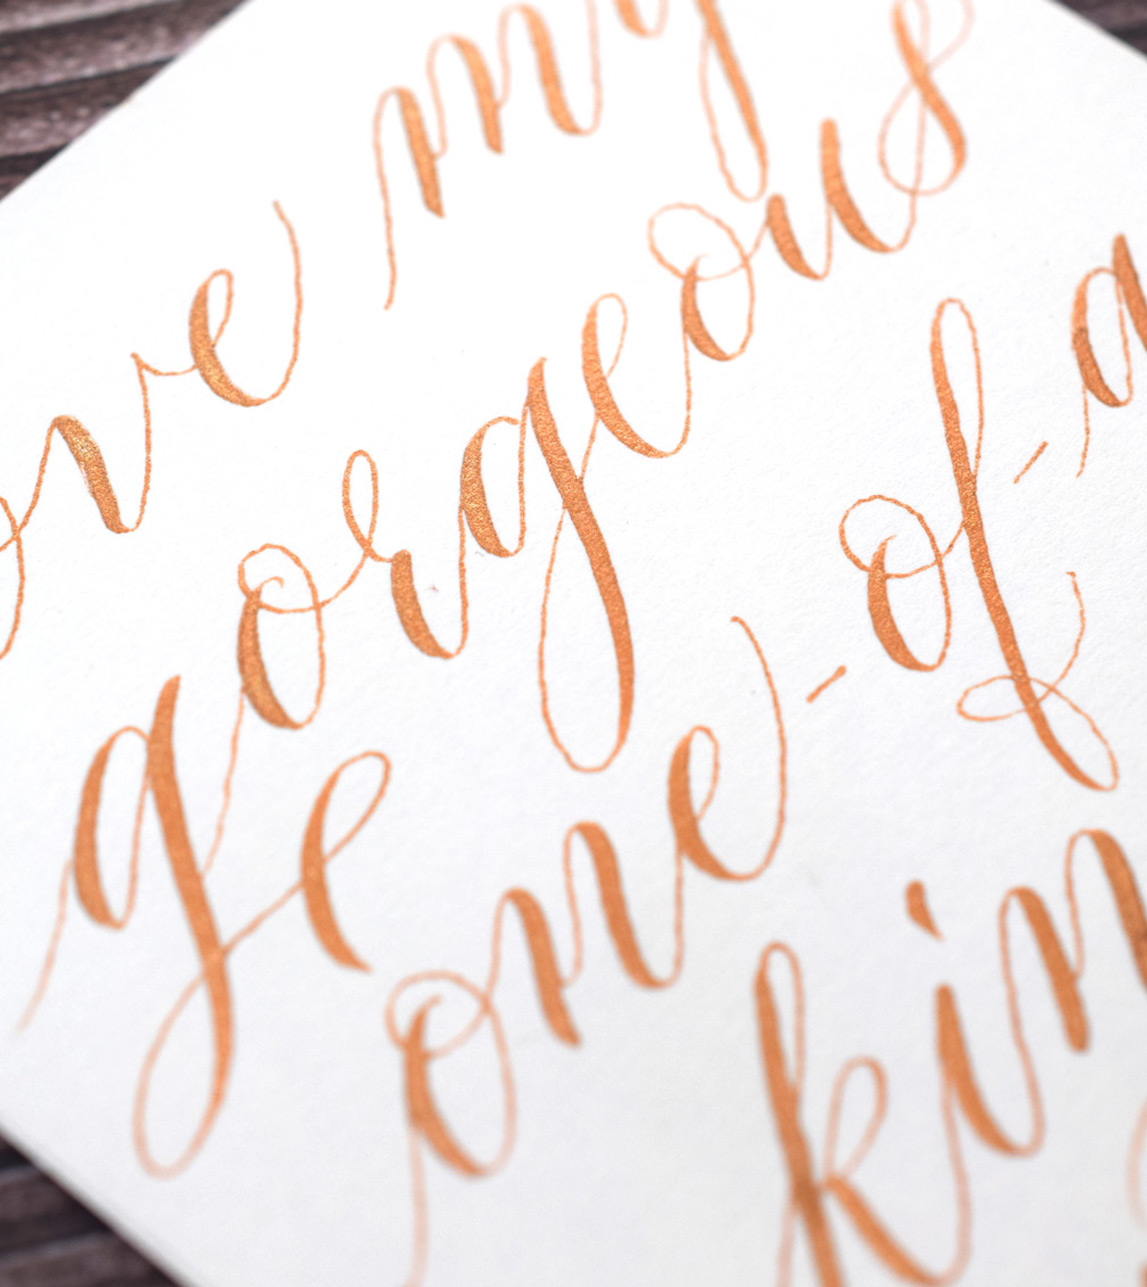 ove my
gorgeous
one-of-a
kin